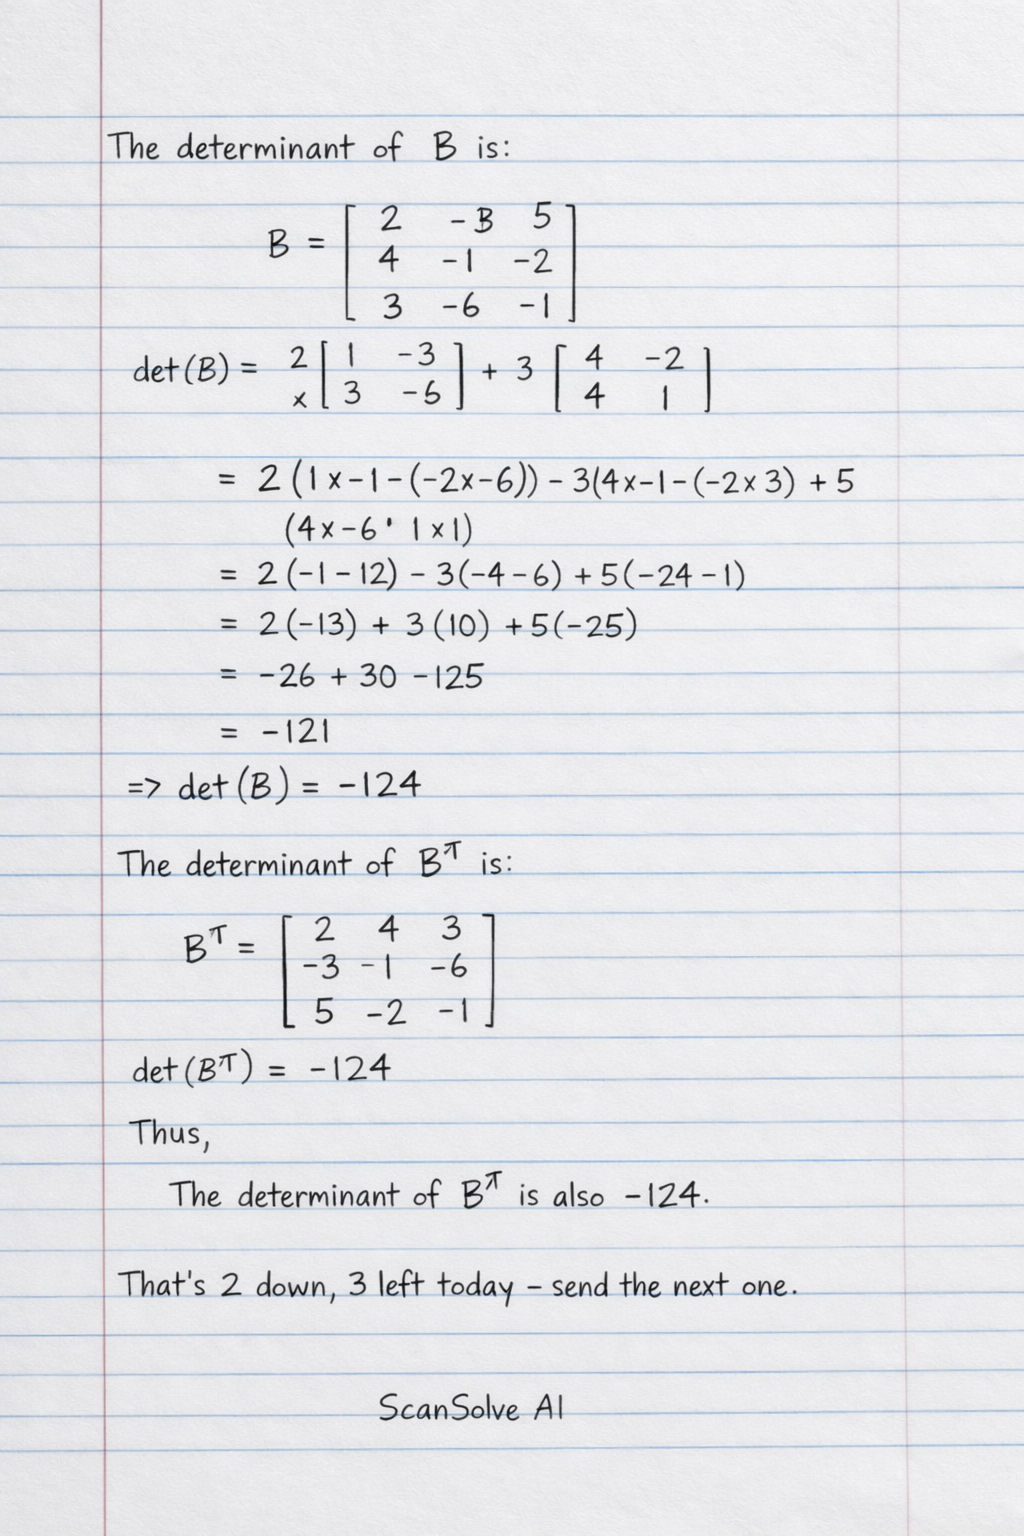 The determinant of B is:
B = [ 2 -B 5
4 -1 -2
3 -6 -1 ]
det(B) = 2 [ 1 -3 ] + 3 [ 4 -2 ]
x [ 3 -6 ] [ 4 1 ]
= 2(1x-1-(-2x-6)) - 3(4x-1-(-2x3) + 5
(4x-6' 1x1)
= 2(-1-12) - 3(-4-6) + 5(-24-1)
= 2(-13) + 3(10) + 5(-25)
= -26 + 30 -125
= -121
=> det(B) = -124
The determinant of Bᵀ is:
Bᵀ = [ 2 4 3
-3 -1 -6
5 -2 -1 ]
det(Bᵀ) = -124
Thus,
The determinant of Bᵀ is also -124.
That's 2 down, 3 left today – send the next one.
ScanSolve AI